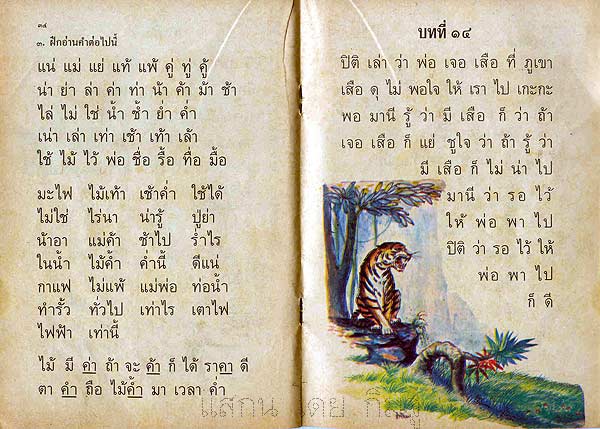 ๓๔
๓. ฝึกอ่านคำต่อไปนี้
แน่ แม่ แย่ แท้ แพ้ คู่ ทู่ คู้
น่า ย่า ล่า ค่า ท่า น้า ค้า ม้า ช้า
ไล่ ไม่ ใช่ น้ำ ช้ำ ย่ำ ค่ำ
เน่า เล่า เท่า เช้า เท้า เล้า
ใช้ ไม้ ไว้ พ่อ ชื่อ รื้อ ทื่อ มื้อ
มะไฟ ไม้เท้า เช้าค่ำ ใช้ได้
ไม่ใช่ ไร่นา น่ารู้ ปู่ย่า
น้าอา แม่ค้า ช้าไป ร่ำไร
ในน้ำ ไม้ค้ำ ค่ำนี้ ดีแน่
กาแฟ ไม่แพ้ แม่พ่อ ท่อน้ำ
ทำรั้ว ทั่วไป เท่าไร เตาไฟ
ไฟฟ้า เท่านี้
ไม้ มี ค่า ถ้า จะ ค้า ก็ ได้ ราคา ดี
ตา คำ ถือ ไม้ค้ำ มา เวลา ค่ำ
บทที่ ๑๔
ปิติ เล่า ว่า พ่อ เจอ เสือ ที่ ภูเขา
เสือ ดุ ไม่ พอใจ ให้ เรา ไป เกะกะ
พอ มานี รู้ ว่า มี เสือ ก็ ว่า ถ้า
เจอ เสือ ก็ แย่ ชูใจ ว่า ถ้า รู้ ว่า
มี เสือ ก็ ไม่ น่า ไป
มานี ว่า รอ ไว้
ให้ พ่อ พา ไป
ปิติ ว่า รอ ไว้ ให้
พ่อ พา ไป
ก็ ดี
แสกน โดย